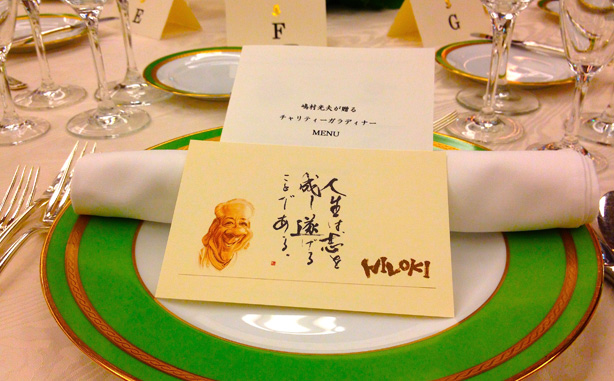 E
F
G
嶋村光夫が贈る
チャリティーガラディナー
MENU
人生は志を
成し遂げる
ことである。
HILOKI